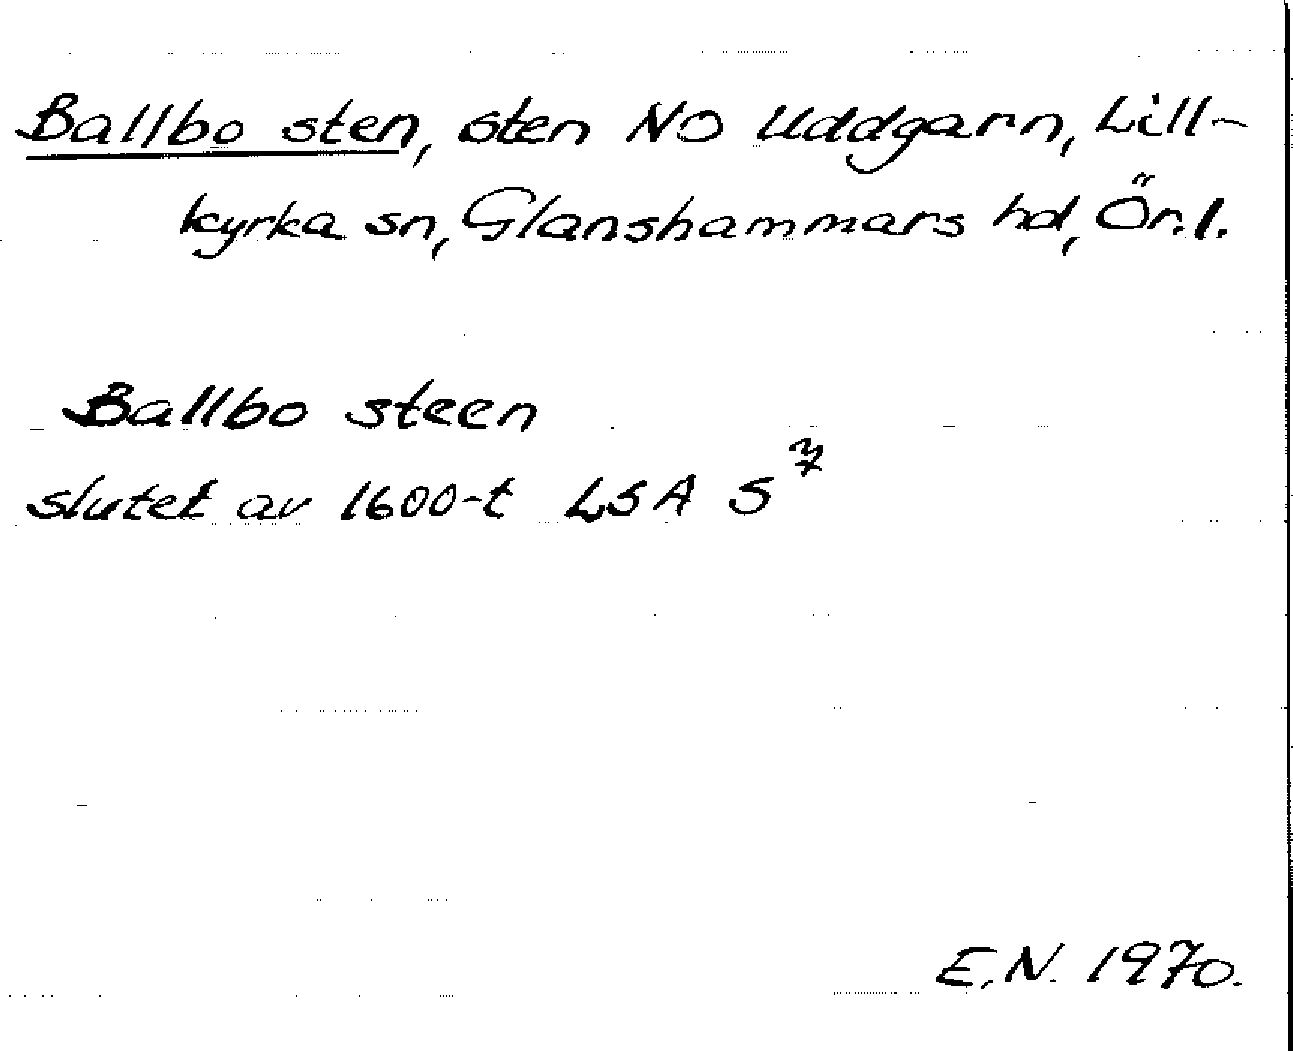 Ballbo sten, sten NO Uddgarn, Lill-
kyrka sn, Glanshammars hd, Ör.l.
Ballbo steen
slutet av 1600-t LSA S⁷
E.N. 1970.